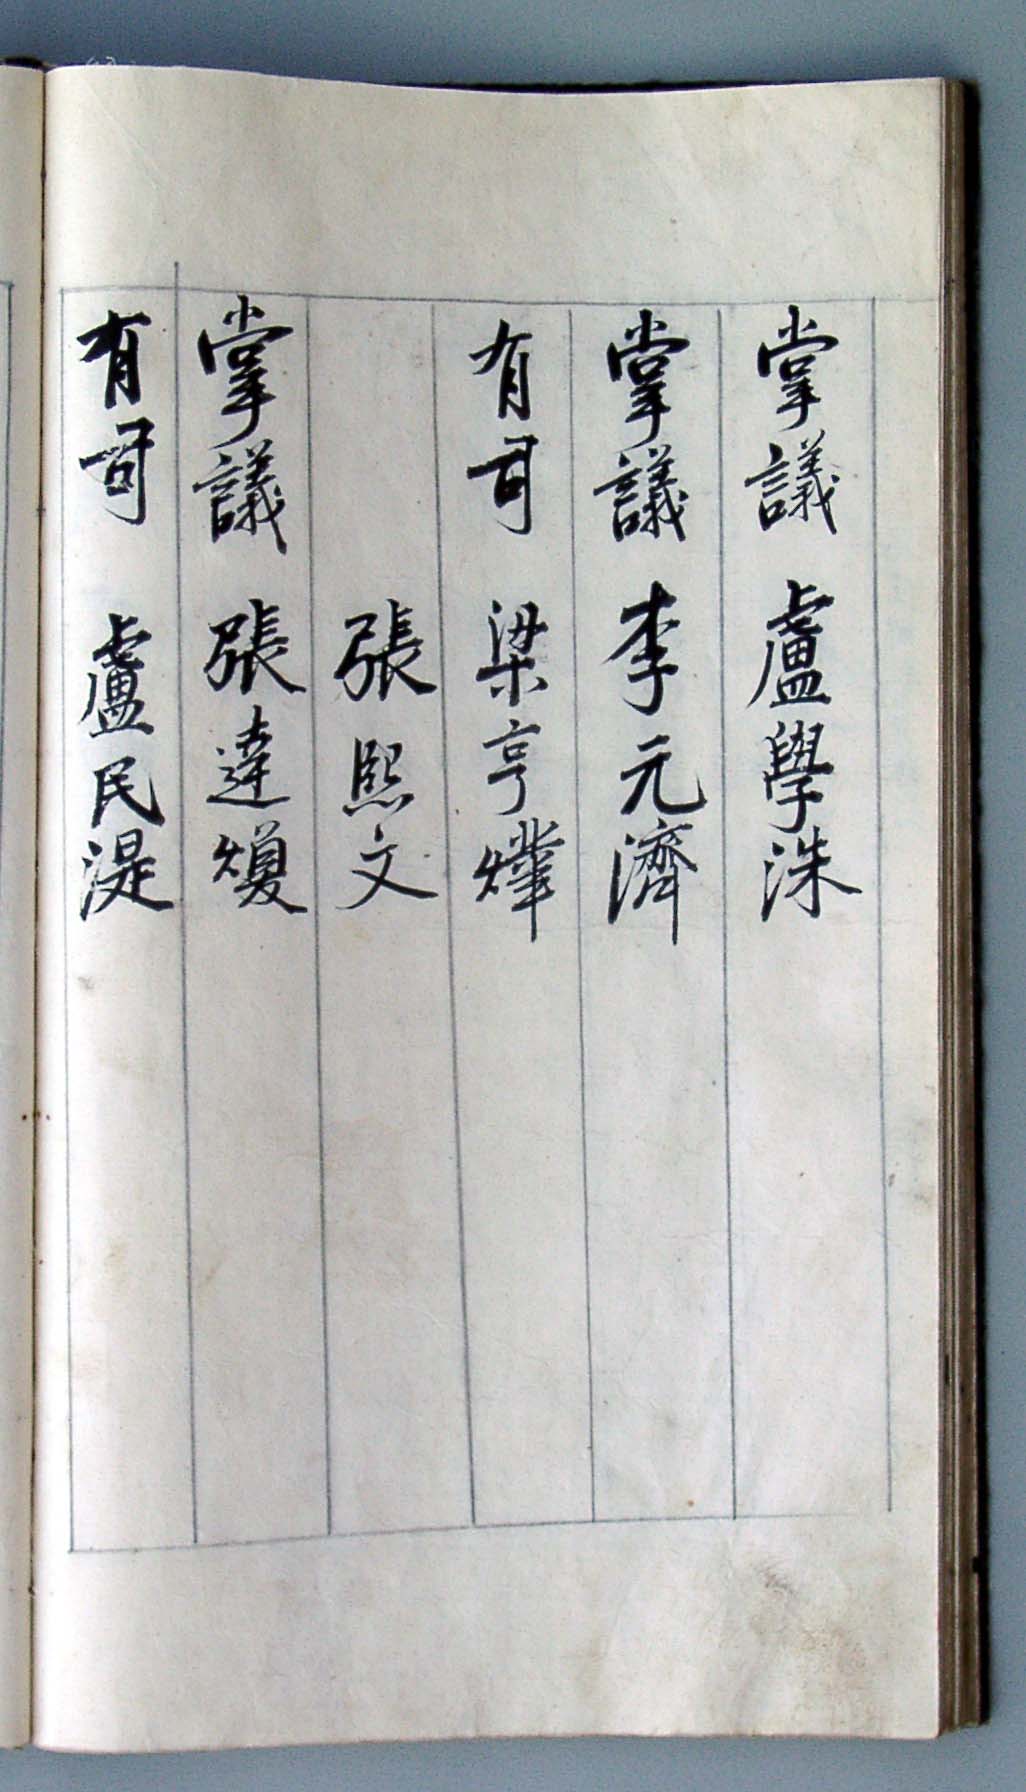 掌議 盧學洙
掌議 李元濟
有司 梁亨燁
張熙文
掌議 張達煥
有司 盧民湜